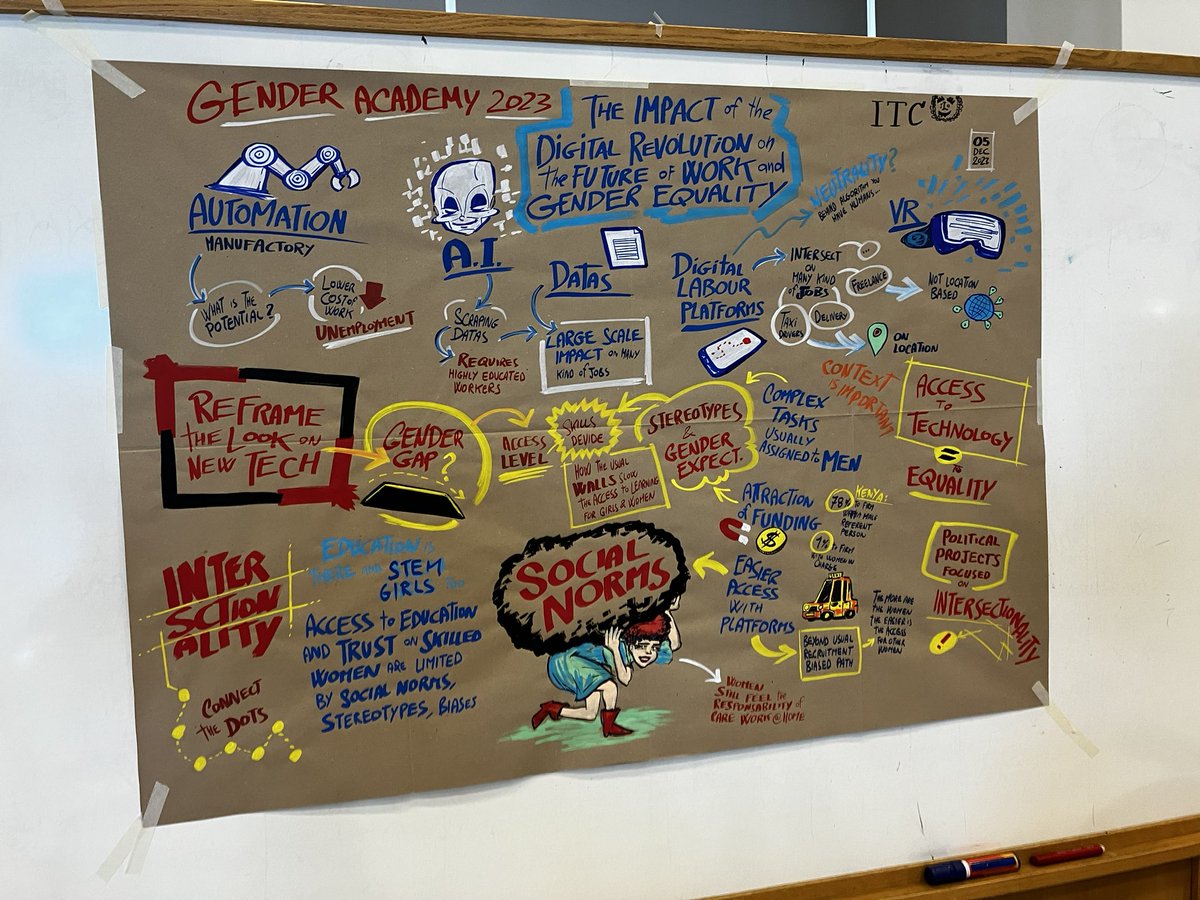 GENDER ACADEMY 2023
THE IMPACT of the
DIGITAL REVOLUTION on
the FUTURE of WORK and
GENDER EQUALITY
ITC
05
DEC
2023
AUTOMATION
MANUFACTORY
WHAT IS THE
POTENTIAL?
LOWER
COST of
WORK
UNEMPLOYMENT
A.I.
SCRAPING
DATAS
REQUIRES
HIGHLY EDUCATED
WORKERS
DATAS
LARGE SCALE
IMPACT ON MANY
KIND of JOBS
DIGITAL
LABOUR
PLATFORMS
NEUTRALITY?
BEHIND ALGORITHM YOU
HAVE HUMANS...
INTERSECT
ON
MANY KIND
of JOBS
...
FREELANCE
TAXI
DRIVERS
DELIVERY
NOT LOCATION
BASED
ON
LOCATION
VR
REFRAME
the LOOK ON
NEW TECH
GENDER
GAP?
ACCESS
LEVEL
SKILLS
DEVIDE
HOW THE USUAL
WALLS SLOW
THE ACCESS to LEARNING
FOR GIRLS & WOMEN
STEREOTYPES
&
GENDER
EXPECT.
COMPLEX
TASKS
USUALLY
ASSIGNED to MEN
CONTEXT
IS IMPORTANT
ACCESS
TO
TECHNOLOGY
=
TO
EQUALITY
ATTRACTION
of FUNDING
$
KENYA:
78%
TO FIRM
WITH A MALE
REFERENT
PERSON
1%
TO FIRM
WITH WOMEN IN
CHARGE
EASIER
ACCESS
WITH
PLATFORMS
BEYOND USUAL
RECRUITMENT
BIASED PATH
THE MORE ARE
THE WOMEN
THE EASIER IS
THE ACCESS
FOR OTHER
WOMEN
POLITICAL
PROJECTS
FOCUSED
ON
INTERSECTIONALITY
!
INTER
SCTION
ALITY
CONNECT
the DOTS
EDUCATION is
THERE AND STEM
GIRLS too
ACCESS to EDUCATION
AND TRUST ON SKILLED
WOMEN ARE LIMITED
BY SOCIAL NORMS,
STEREOTYPES, BIASES
SOCIAL
NORMS
WOMEN
STILL FEEL the
RESPONSABILITY of
CARE WORK @ HOME